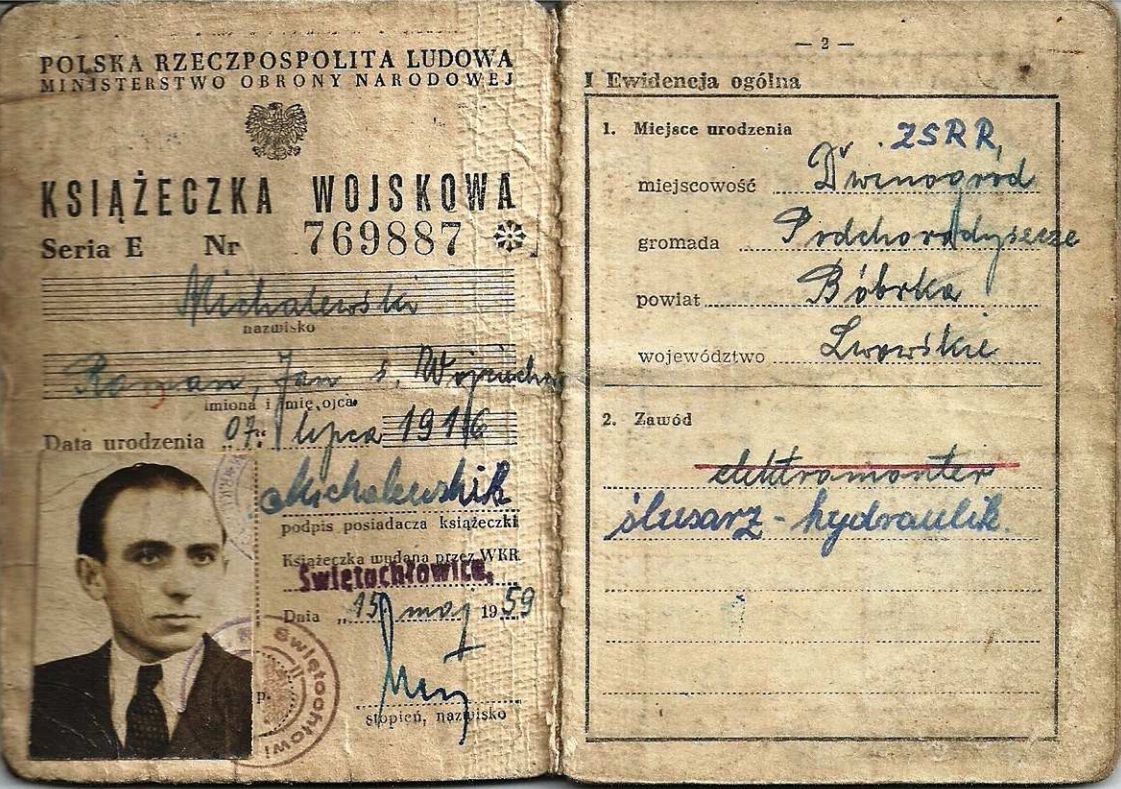 POLSKA RZECZPOSPOLITA LUDOWA
MINISTERSTWO OBRONY NARODOWEJ
KSIĄŻECZKA WOJSKOWA
Seria E Nr 769887
Michalewski
nazwisko
Roman, Jan s.
imiona i imię ojca
Data urodzenia „07." lipca 1916
Michalewski
podpis posiadacza książeczki
Książeczka wydana przez WKR
Świętochłowice,
Dnia „15" maj 1959
Świętochłowi
p.
stopień, nazwisko
— 2 —
I Ewidencja ogólna
1. Miejsce urodzenia
ZSRR,
miejscowość Dźwinogród
gromada Podchorodyszcze
powiat Bóbrka
województwo Lwowskie
2. Zawód
elektromonter
ślusarz - hydraulik.